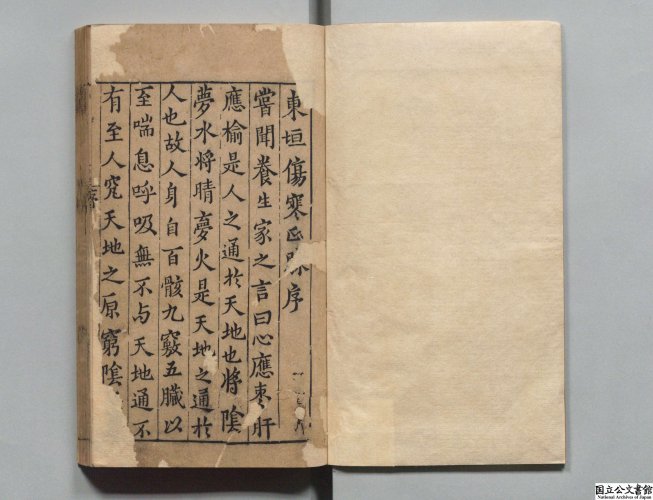 東垣傷寒正脉序
嘗聞養生家之言曰心應棗肝
應榆是人之通於天地也將陰
夢水将晴夢火是天地之通於
人也故人身自百骸九竅五臓以
至喘息呼吸無不与天地通不
有至人究天地之原窮陰
国立公文書館
National Archives of Japan